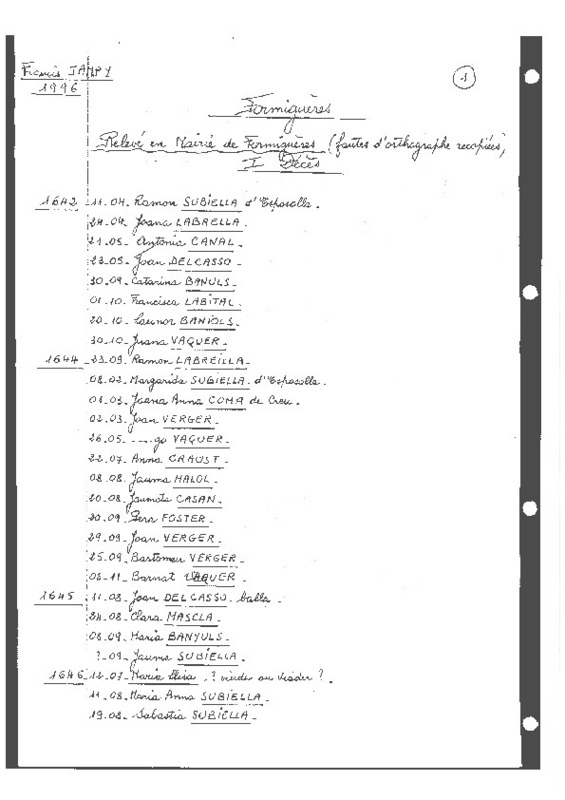 Francis JAMPY
1996
1
Formiguères
Relevé en Mairie de Formiguères (fautes d'orthographe recopiées)
I Décès
1642 - 11.04. Ramon SUBIELLA d'Esposolla.
24.04. Joana LABRELLA.
21.05. Antonia CANAL.
23.05. Joan DELCASSO.
30.09. Catarina BANULS.
01.10. Francisca LABITAL.
20.10. BANIOLS.
30.10. Juana VAQUER.
1644 - 23.09. Ramon LABREILLA.
08.02. Margarida SUBIELLA d'Esposolla.
01.03. Joana Anna COMA de Creu.
02.03. Joan VERGER.
26.05. ----go VAQUER.
22.07. Anna CRAUST.
08.08. Jauma MALOL.
20.08. Jaumeta CASAN.
20.09. Pera FOSTER.
29.09. Joan VERGER.
25.09. Bartomeu VERGER.
02-11. Barnat VAQUER.
1645 - 11.08. Joan DELCASSO balla.
24.08. Clara MASCLA.
08.09. Maria BANYULS.
?.09. Jauma SUBIELLA.
1646 - 12.07. Maria Elisa. ? ou ?.
11.08. Maria Anna SUBIELLA.
19.08. Sabastia SUBIELLA.